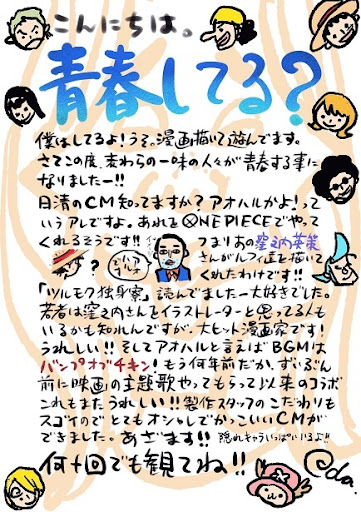 こんにちは。
青春してる？
僕はしてるよ！うそ。漫画描いて遊んでます。
さてこの度、麦わらの一味の人々が青春する事に
なりましたー!!
日清のCM知ってますか？アオハルかよ！って
いうアレですよ。あれをONE PIECEでやって
くれるそうです!!
？
つまりあの窪之内英策
さんがルフィ達を描いて
くれたわけです!!
「ツルモク独身寮」読んでましたー大好きでした。
若者は窪之内さんをイラストレーターと思ってる人も
いるかも知れんですが、大ヒット漫画家です！
うれしい!!そしてアオハルと言えばBGMは
バンプオブチキン！もう何年前だか、ずいぶん
前に映画の主題歌やってもらって以来のコラボ
これもまたうれしい!!製作スタッフのこだわりも
スゴイのでとてもオシャレでかっこいいCMが
できました。あざます!!隠れキャラいっぱいいるよ!!
何十回でも観てね!!
Oda.